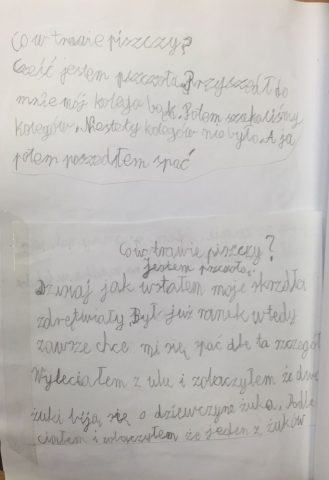 Co w trawie piszczy?
Cześć jestem pszczoła. Przyszedł do
mnie mój kolega bąk. Potem szukaliśmy
kolegów. Niestety kolegów nie było. A ja
potem poszedłem spać
Co w trawie piszczy?
Jestem pszczołą.
Dzisiaj jak wstałem moje skrzydła
zdrętwiały. Był już ranek wtedy
zawsze chce mi się spać ale ta szczegół
Wyleciałem z ulu i zobaczyłem że dwa
żuki biją się o dziewczyne żuka. Podle
ciałem i zobaczyłem że jeden z żuków